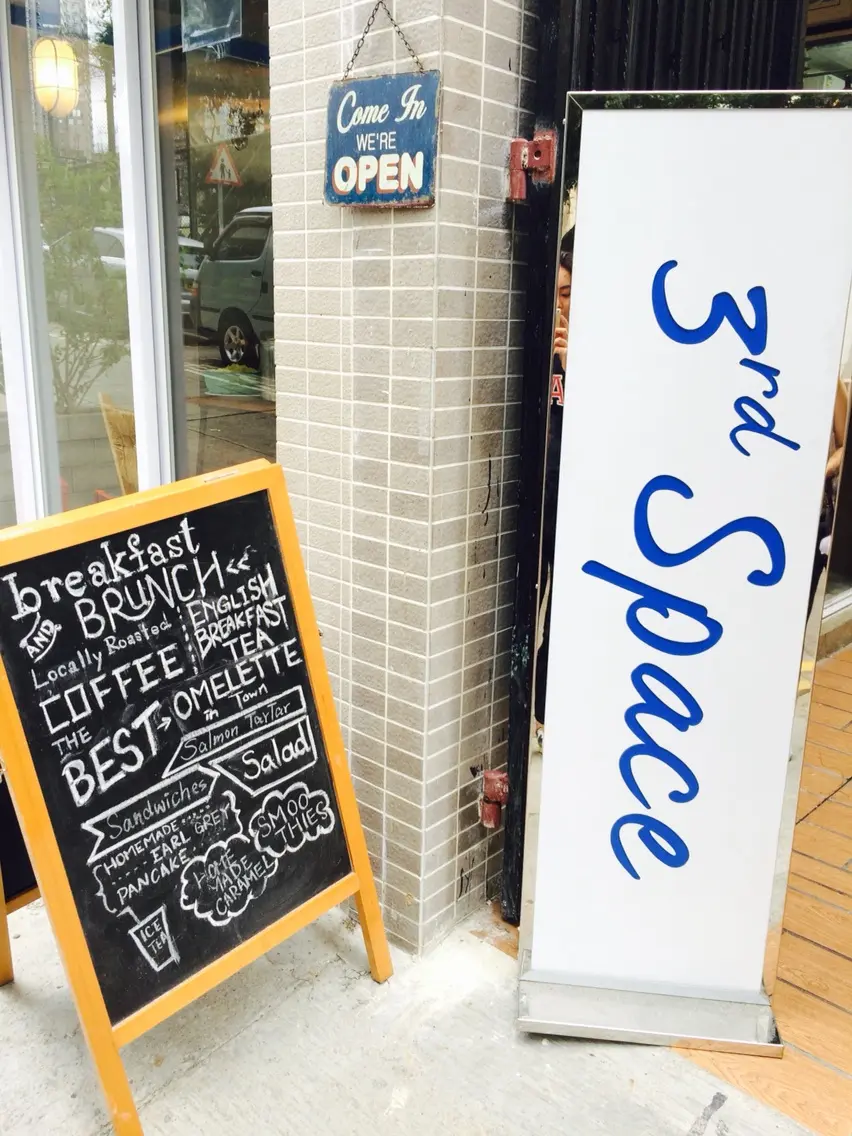 Come In
WE'RE
OPEN
3rd Space
breakfast
AND BRUNCH <<
Locally Roasted
COFFEE
ENGLISH
BREAKFAST
TEA
THE
BEST → OMELETTE
in Town
Salmon TarTar
Salad
Sandwiches
HOMEMADE
EARL GREY
PANCAKE
SMOO
THIES
HOME
MADE
CARAMEL
ICE
TEA
A